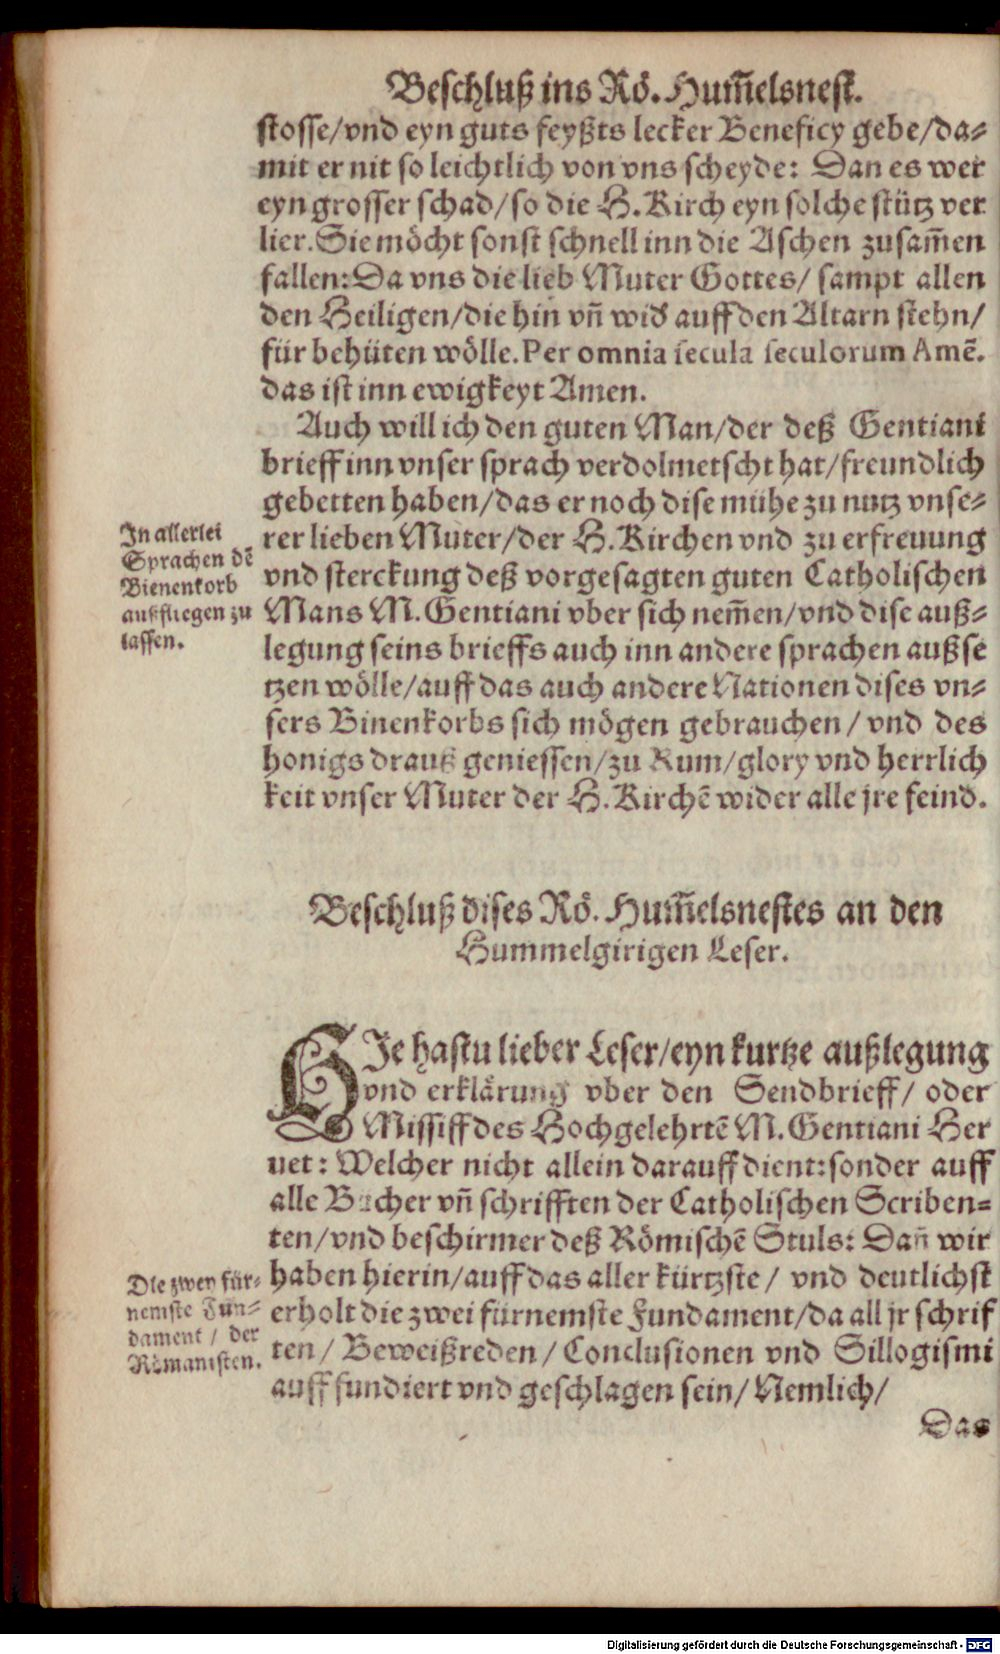 Beschluß ins Rö. Hum̃elsnest.
stosse/vnd eyn guts feyßts lecker Beneficy gebe/da-
mit er nit so leichtlich von vns scheyde: Dan es wer
eyn grosser schad/so die H. Kirch eyn solche stütz ver
lier. Sie möcht sonst schnell inn die Aschen zusam̃en
fallen: Da vns die lieb Muter Gottes/ sampt allen
den Heiligen/die hin vñ wid auff den Altarn stehn/
für behüten wölle. Per omnia secula seculorum Amẽ.
das ist inn ewigkeyt Amen.
Auch will ich den guten Man/der deß Gentiani
brieff inn vnser sprach verdolmetscht hat/freundlich
gebetten haben/das er noch dise mühe zu nutz vnse-
rer lieben Muter/der H. Kirchen vnd zu erfreuung
vnd sterckung deß vorgesagten guten Catholischen
Mans M. Gentiani vber sich nem̃en/vnd dise auß-
legung seins brieffs auch inn andere sprachen außse
tzen wölle/auff das auch andere Nationen dises vn-
sers Binenkorbs sich mögen gebrauchen/ vnd des
honigs drauß geniessen/zu Rum/glory vnd herrlich
keit vnser Muter der H. Kirchẽ wider alle jre feind.
In allerlei
Sprachen dẽ
Bienenkorb
außfliegen zu
lassen.
Beschluß dises Rö. Hum̃elsnestes an den
Hummelgirigen Leser.
HIe hastu lieber Leser/eyn kurtze außlegung
vnd erklärung vber den Sendbrieff/ oder
Missiff des Hochgelehrtẽ M. Gentiani Her
uet: Welcher nicht allein darauff dient: sonder auff
alle Bücher vñ schrifften der Catholischen Scriben-
ten/vnd beschirmer deß Römischẽ Stuls: Dañ wir
haben hierin/auff das aller kürtzste/ vnd deutlichst
erholt die zwei fürnemste Fundament/da all jr schrif
ten/ Beweißreden/ Conclusionen vnd Sillogismi
auff fundiert vnd geschlagen sein/ Nemlich/
Die zwen für-
nemste Fun-
dament/ der
Römanisten.
Das
Digitalisierung gefördert durch die Deutsche Forschungsgemeinschaft - DFG